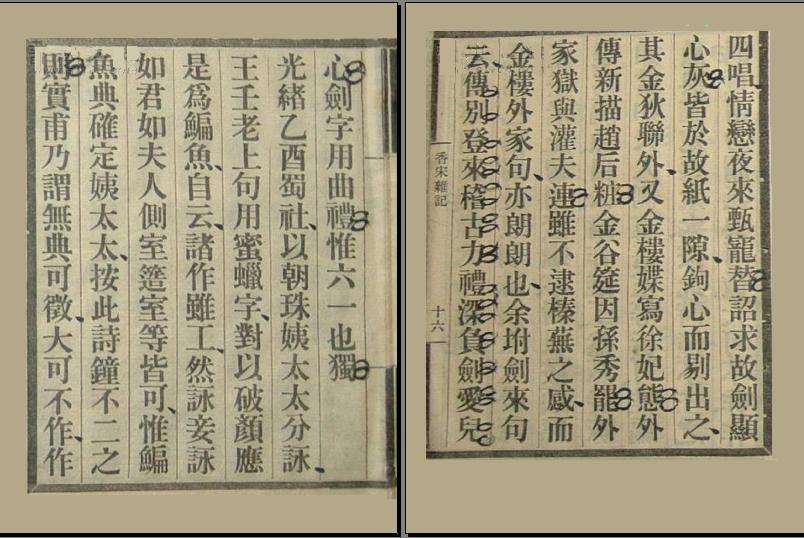 四唱情戀夜來甄寵替詔求故劍顯
心灰皆於故紙一隙鉤心而剔出之
其金狄聯外又金樓媟寫徐妃態外
傳新描趙后粧金谷筵因孫秀罷外
家獄與灌夫連雖不逮榛蕪之感而
金樓外家句亦朗朗也余坿劍來句
云傳別登來稽古力禮深負劍愛兒
香宋雜記
十六
心劍字用曲禮惟六一也獨
光緒乙酉蜀社以朝珠姨太太分詠
王壬老上句用蜜蠟字對以破顏應
是爲鯿魚自云諸作雖工然詠妾詠
如君如夫人側室簉室等皆可惟鯿
魚典確定姨太太按此詩鐘不二之
則實甫乃謂無典可徵大可不作作